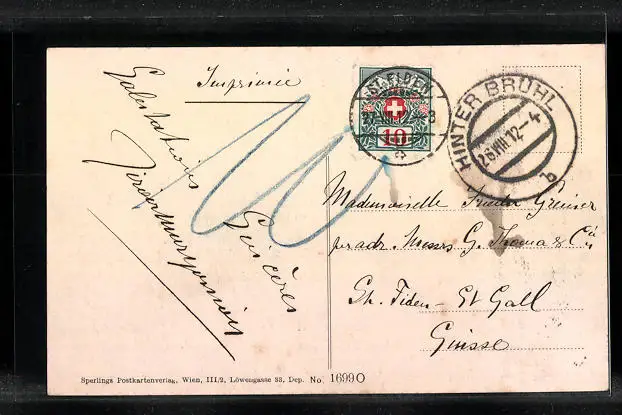 Imprimée
Salutations
Sincères
ST. FIDEN
27.VIII.
10
HINTERBRÜHL
26 VIII 12-4
b
Mademoiselle Frieda
per adr. Messrs G. Thoma & Cie
St. Fiden - St Gall
Suisse
Sperlings Postkartenverlag, Wien, III/2, Löwengasse 33, Dep. No. 1699O